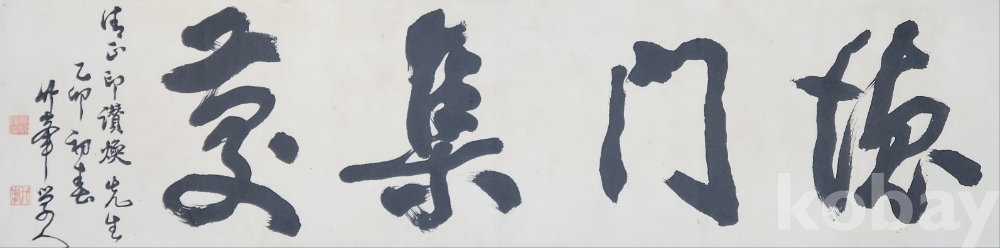 德門集慶
清正印讚煥先生
乙卯初春
竹峯學人
kobay